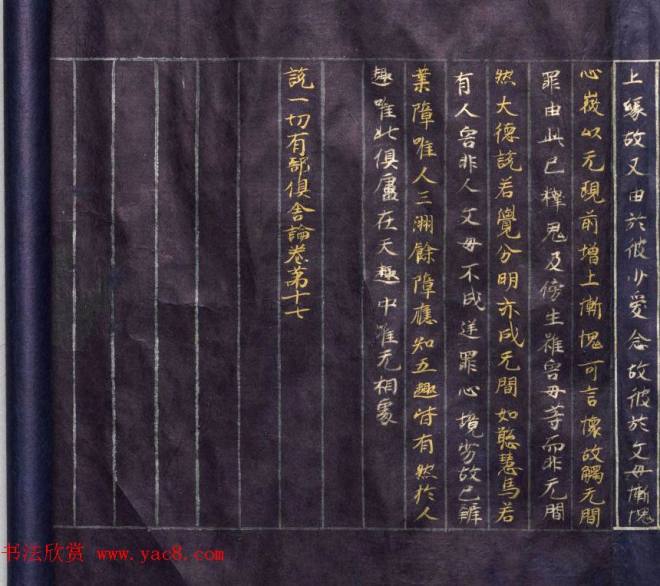 上緣故又由於彼少愛念故彼於父母慚愧
心微以无現前增上慚愧可言懷故觸无間
罪由此已釋鬼及傍生雖害母等而非无間
然大德說若覺分明亦成无間如聡慧馬若
有人害非人父母不成逆罪心境劣故已辯
業障唯人三洲餘障應知五趣皆有然於人
趣唯北俱盧在天趣中唯无相處
說一切有部俱舍論卷第十七
书法欣赏 www.yac8.com